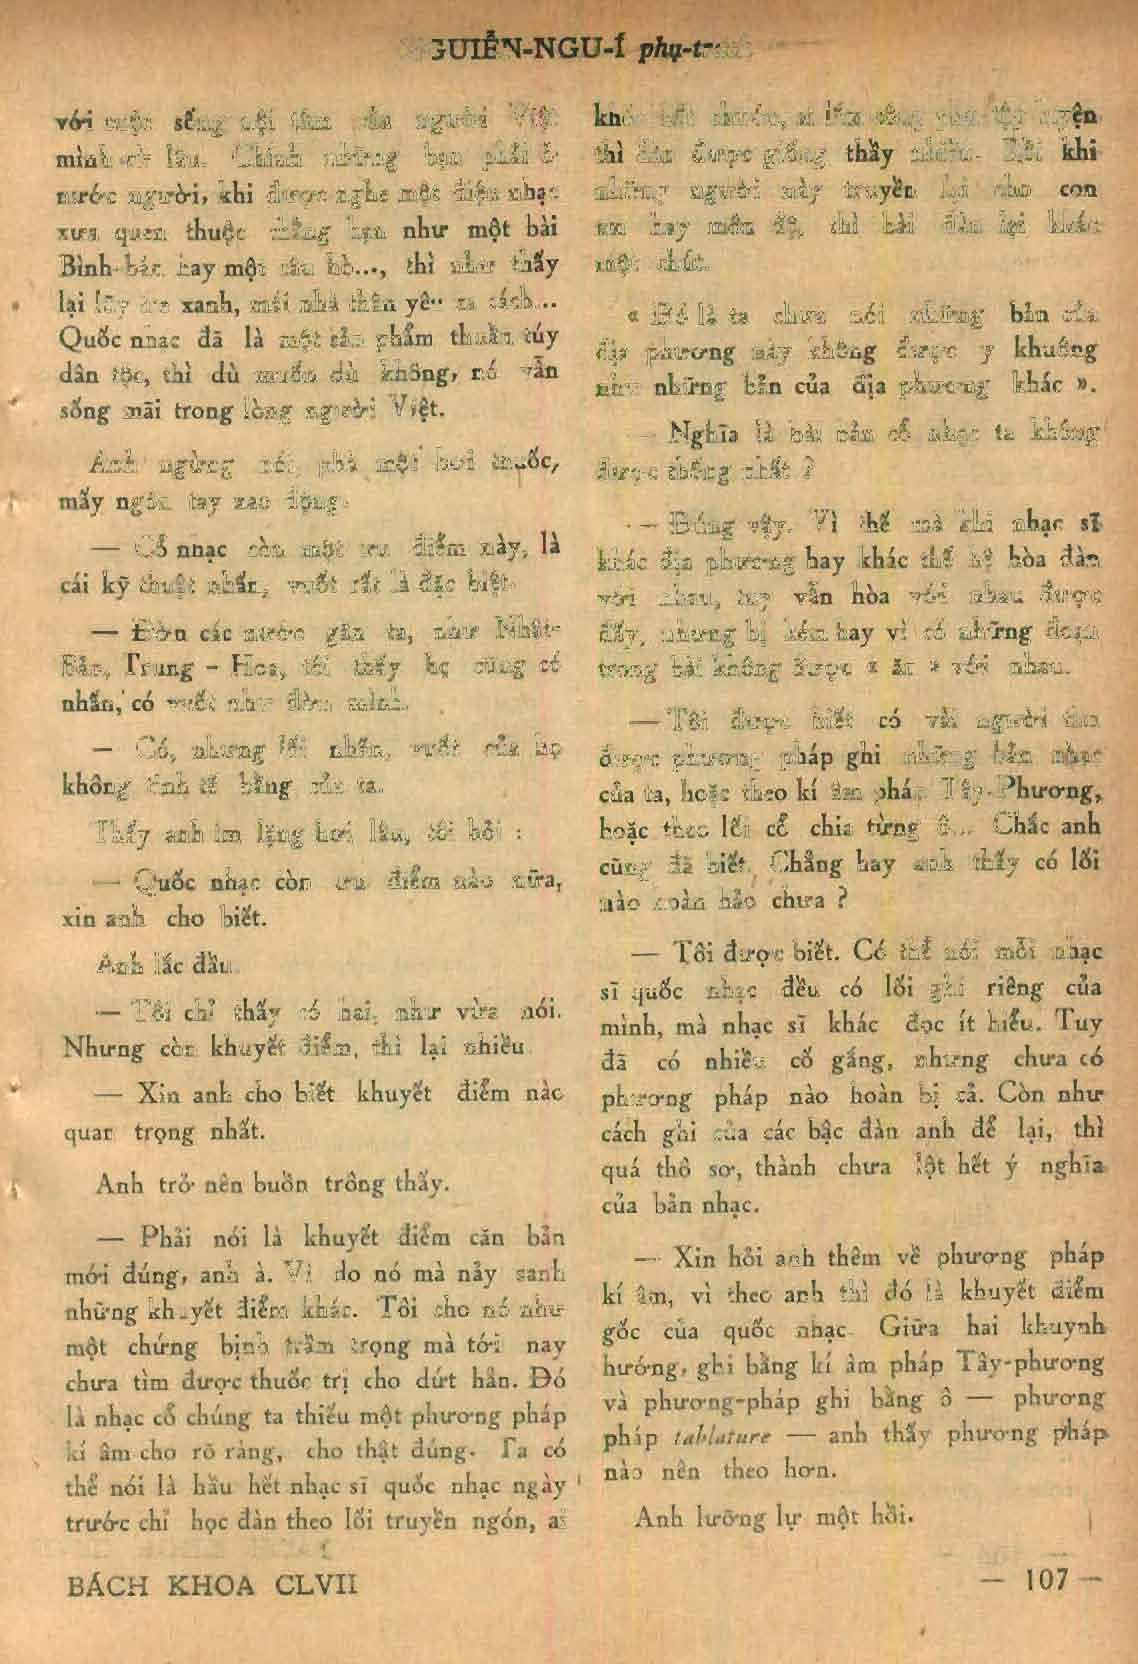 NGUIỄN-NGU-Í phụ-trách
với cuộc sống nội tâm của người Việt
mình từ lâu. Chính những bạn phải ở
nước người, khi được nghe một điệu nhạc
xưa quen thuộc chẳng hạn như một bài
Bình-bán hay một câu hò..., thì như thấy
lại lũy tre xanh, mái nhà thân yêu xa cách...
Quốc nhạc đã là một sản phẩm thuần túy
dân tộc, thì dù muốn dù không, nó vẫn
sống mãi trong lòng người Việt.
Anh ngừng nói, phà một hơi thuốc,
mấy ngón tay xao động.
— Cổ nhạc còn một ưu điểm này, là
cái kỹ thuật nhấn, vuốt rất là đặc biệt.
— Đờn các nước gần ta, như Nhật-
Bản, Trung - Hoa, tôi thấy họ cũng có
nhấn, có vuốt như đờn mình.
— Có, nhưng lối nhấn, vuốt của họ
không tinh tế bằng của ta.
Thấy anh im lặng hơi lâu, tôi hỏi :
— Quốc nhạc còn ưu điểm nào nữa,
xin anh cho biết.
Anh lắc đầu.
— Tôi chỉ thấy có hai, như vừa nói.
Nhưng còn khuyết điểm, thì lại nhiều.
— Xin anh cho biết khuyết điểm nào
quan trọng nhất.
Anh trở nên buồn trông thấy.
— Phải nói là khuyết điểm căn bản
mới đúng, anh à. Vì do nó mà nảy sanh
những khuyết điểm khác. Tôi cho nó như
một chứng bịnh trầm trọng mà tới nay
chưa tìm được thuốc trị cho dứt hẳn. Đó
là nhạc cổ chúng ta thiếu một phương pháp
kí âm cho rõ ràng, cho thật đúng. Ta có
thể nói là hầu hết nhạc sĩ quốc nhạc ngày
trước chỉ học đàn theo lối truyền ngón, ai
khéo bắt chước, ai lắm công phu tập luyện
thì đàn được giống thầy nhiều. Rồi khi
những người này truyền lại cho con
em hay môn đệ, thì bài đàn lại khác
một chút.
« Đó là ta chưa nói những bản của
địa phương này không được y khuông
như những bản của địa phương khác ».
— Nghĩa là bài bản cổ nhạc ta không
được thống nhất ?
— Đúng vậy. Vì thế mà khi nhạc sĩ
khác địa phương hay khác thế hệ hòa đàn
với nhau, tuy vẫn hòa với nhau được
đấy, nhưng bị kém hay vì có những đoạn
trong bài không được « ăn » với nhau.
— Tôi được biết có vài người tìm
được phương pháp ghi những bản nhạc
của ta, hoặc theo kí âm pháp Tây-Phương,
hoặc theo lối cổ chia từng ô... Chắc anh
cũng đã biết. Chẳng hay anh thấy có lối
nào hoàn hảo chưa ?
— Tôi được biết. Có thể nói mỗi nhạc
sĩ quốc nhạc đều có lối ghi riêng của
mình, mà nhạc sĩ khác đọc ít hiểu. Tuy
đã có nhiều cố gắng, nhưng chưa có
phương pháp nào hoàn bị cả. Còn như
cách ghi của các bậc đàn anh để lại, thì
quá thô sơ, thành chưa lột hết ý nghĩa
của bản nhạc.
— Xin hỏi anh thêm về phương pháp
kí âm, vì theo anh thì đó là khuyết điểm
gốc của quốc nhạc. Giữa hai khuynh
hướng, ghi bằng kí âm pháp Tây-phương
và phương-pháp ghi bằng ô — phương
pháp tablature — anh thấy phương pháp
nào nên theo hơn.
Anh lưỡng lự một hồi.
BÁCH KHOA CLVII
— 107 —